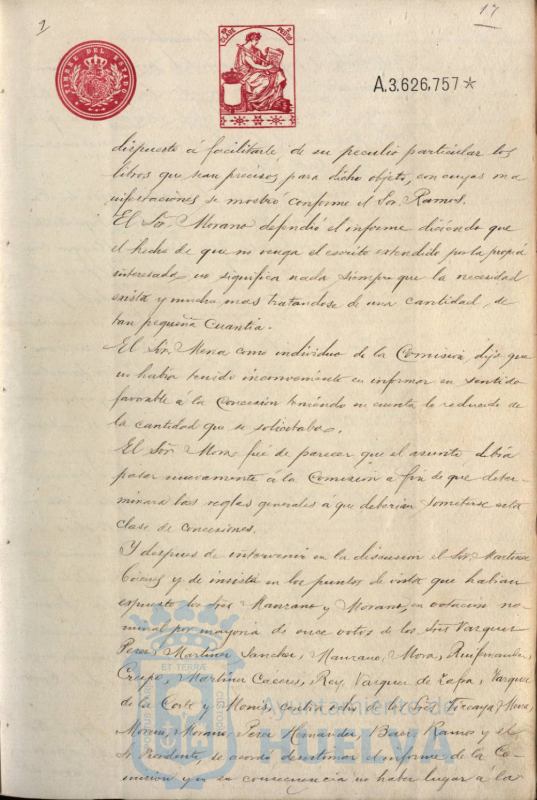 2
17
TIMBRE DEL ESTADO
A.3.626,757*
dispuesto á facilitarle, de su peculio particular los
libros que sean precisos para dicho objeto, con cuyas ma
nifestaciones se mostró conforme el Sor. Ramos.
El Sor. Morano defendió el informe diciendo que
el hecho de que no venga el escrito extendido por la propia
interesada no significa nada siempre que la necesidad
exista y mucho mas tratandose de una cantidad, de
tan pequeña cuantia.
El Sor. Mena como individuo de la Comisión dijo que
no habia tenido inconveniente en informar en sentido
favorable á la concesion teniendo en cuenta lo reducido de
la cantidad que se solicitaba.
El Sor. Mora fué de parecer que el asunto debia
pasar nuevamente á la Comisión a fin de que deter-
minara las reglas generales á que deberian someterse esta
clase de concesiones.
Y despues de intervenir en la discusion el Sor. Martinez
y de insistir en los puntos de vista que habian
expuesto los Sres Manzano y Morano, en votacion no-
minal por mayoria de once votos de los Sres Vazquez
Perez, Martinez Sanchez, Manzano, Mora, Ruifernandez
Crespo, Martinez Caceres, Rey, Vazquez de Zapa, Vazquez
de la Corte y Monis, contra ocho de los Sres Vizcaya, Mena,
Moreno, Morano, Perez Hernandez, Ramos y el
Sr Presidente, se acordó desestimar el informe de la Co-
mision y en su consecuencia no haber lugar á la
ET TERRÆ
Ayuntamiento de
HUELVA